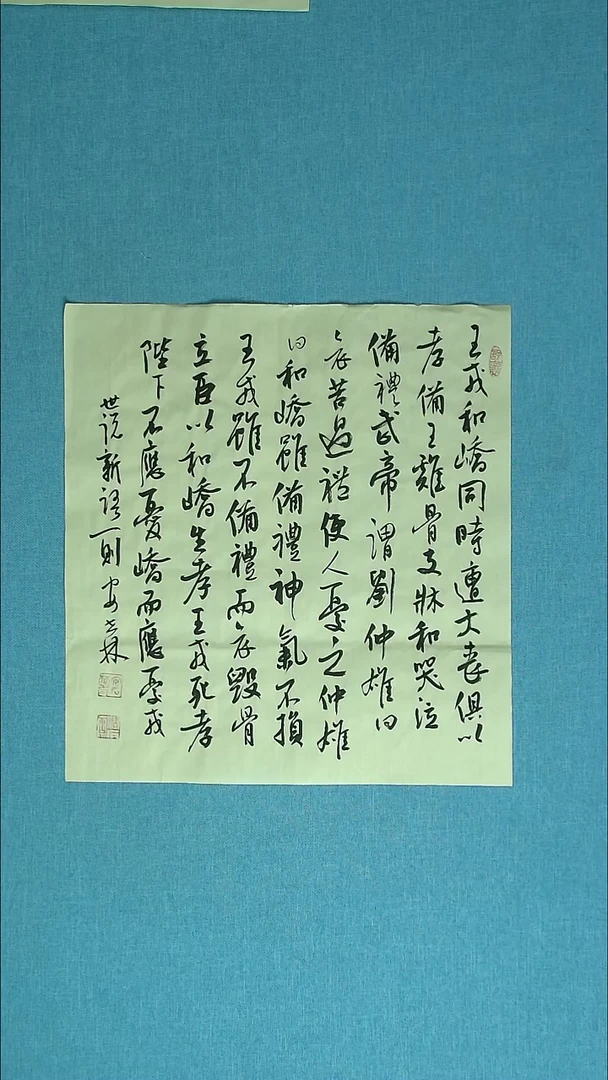 王戎和嶠同時遭大喪俱以
孝備王雞骨支牀和哭泣
備禮武帝謂劉仲雄曰
哀苦過禮便人憂之仲雄
曰和嶠雖備禮神氣不損
王戎雖不備禮而哀毀骨
立臣以和嶠生孝王戎死孝
陛下不應憂嶠而應憂戎
世説新語一則